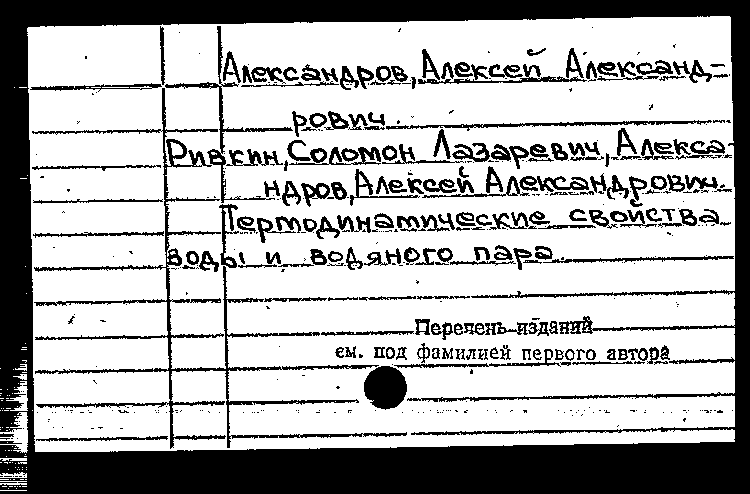 Александров, Алексей Александ-
рович.
Ривкин, Соломон Лазаревич, Алекса-
ндров, Алексей Александрович.
Термодинамические свойства
воды и водяного пара.
Перечень изданий
см. под фамилией первого автора